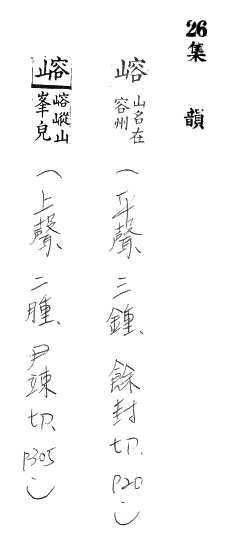 26集韻
嵱 山名在容州（平聲、三鍾、餘封切、P20）
嵱 嵱嵷山峯皃（上聲、二腫、尹竦切、P305）